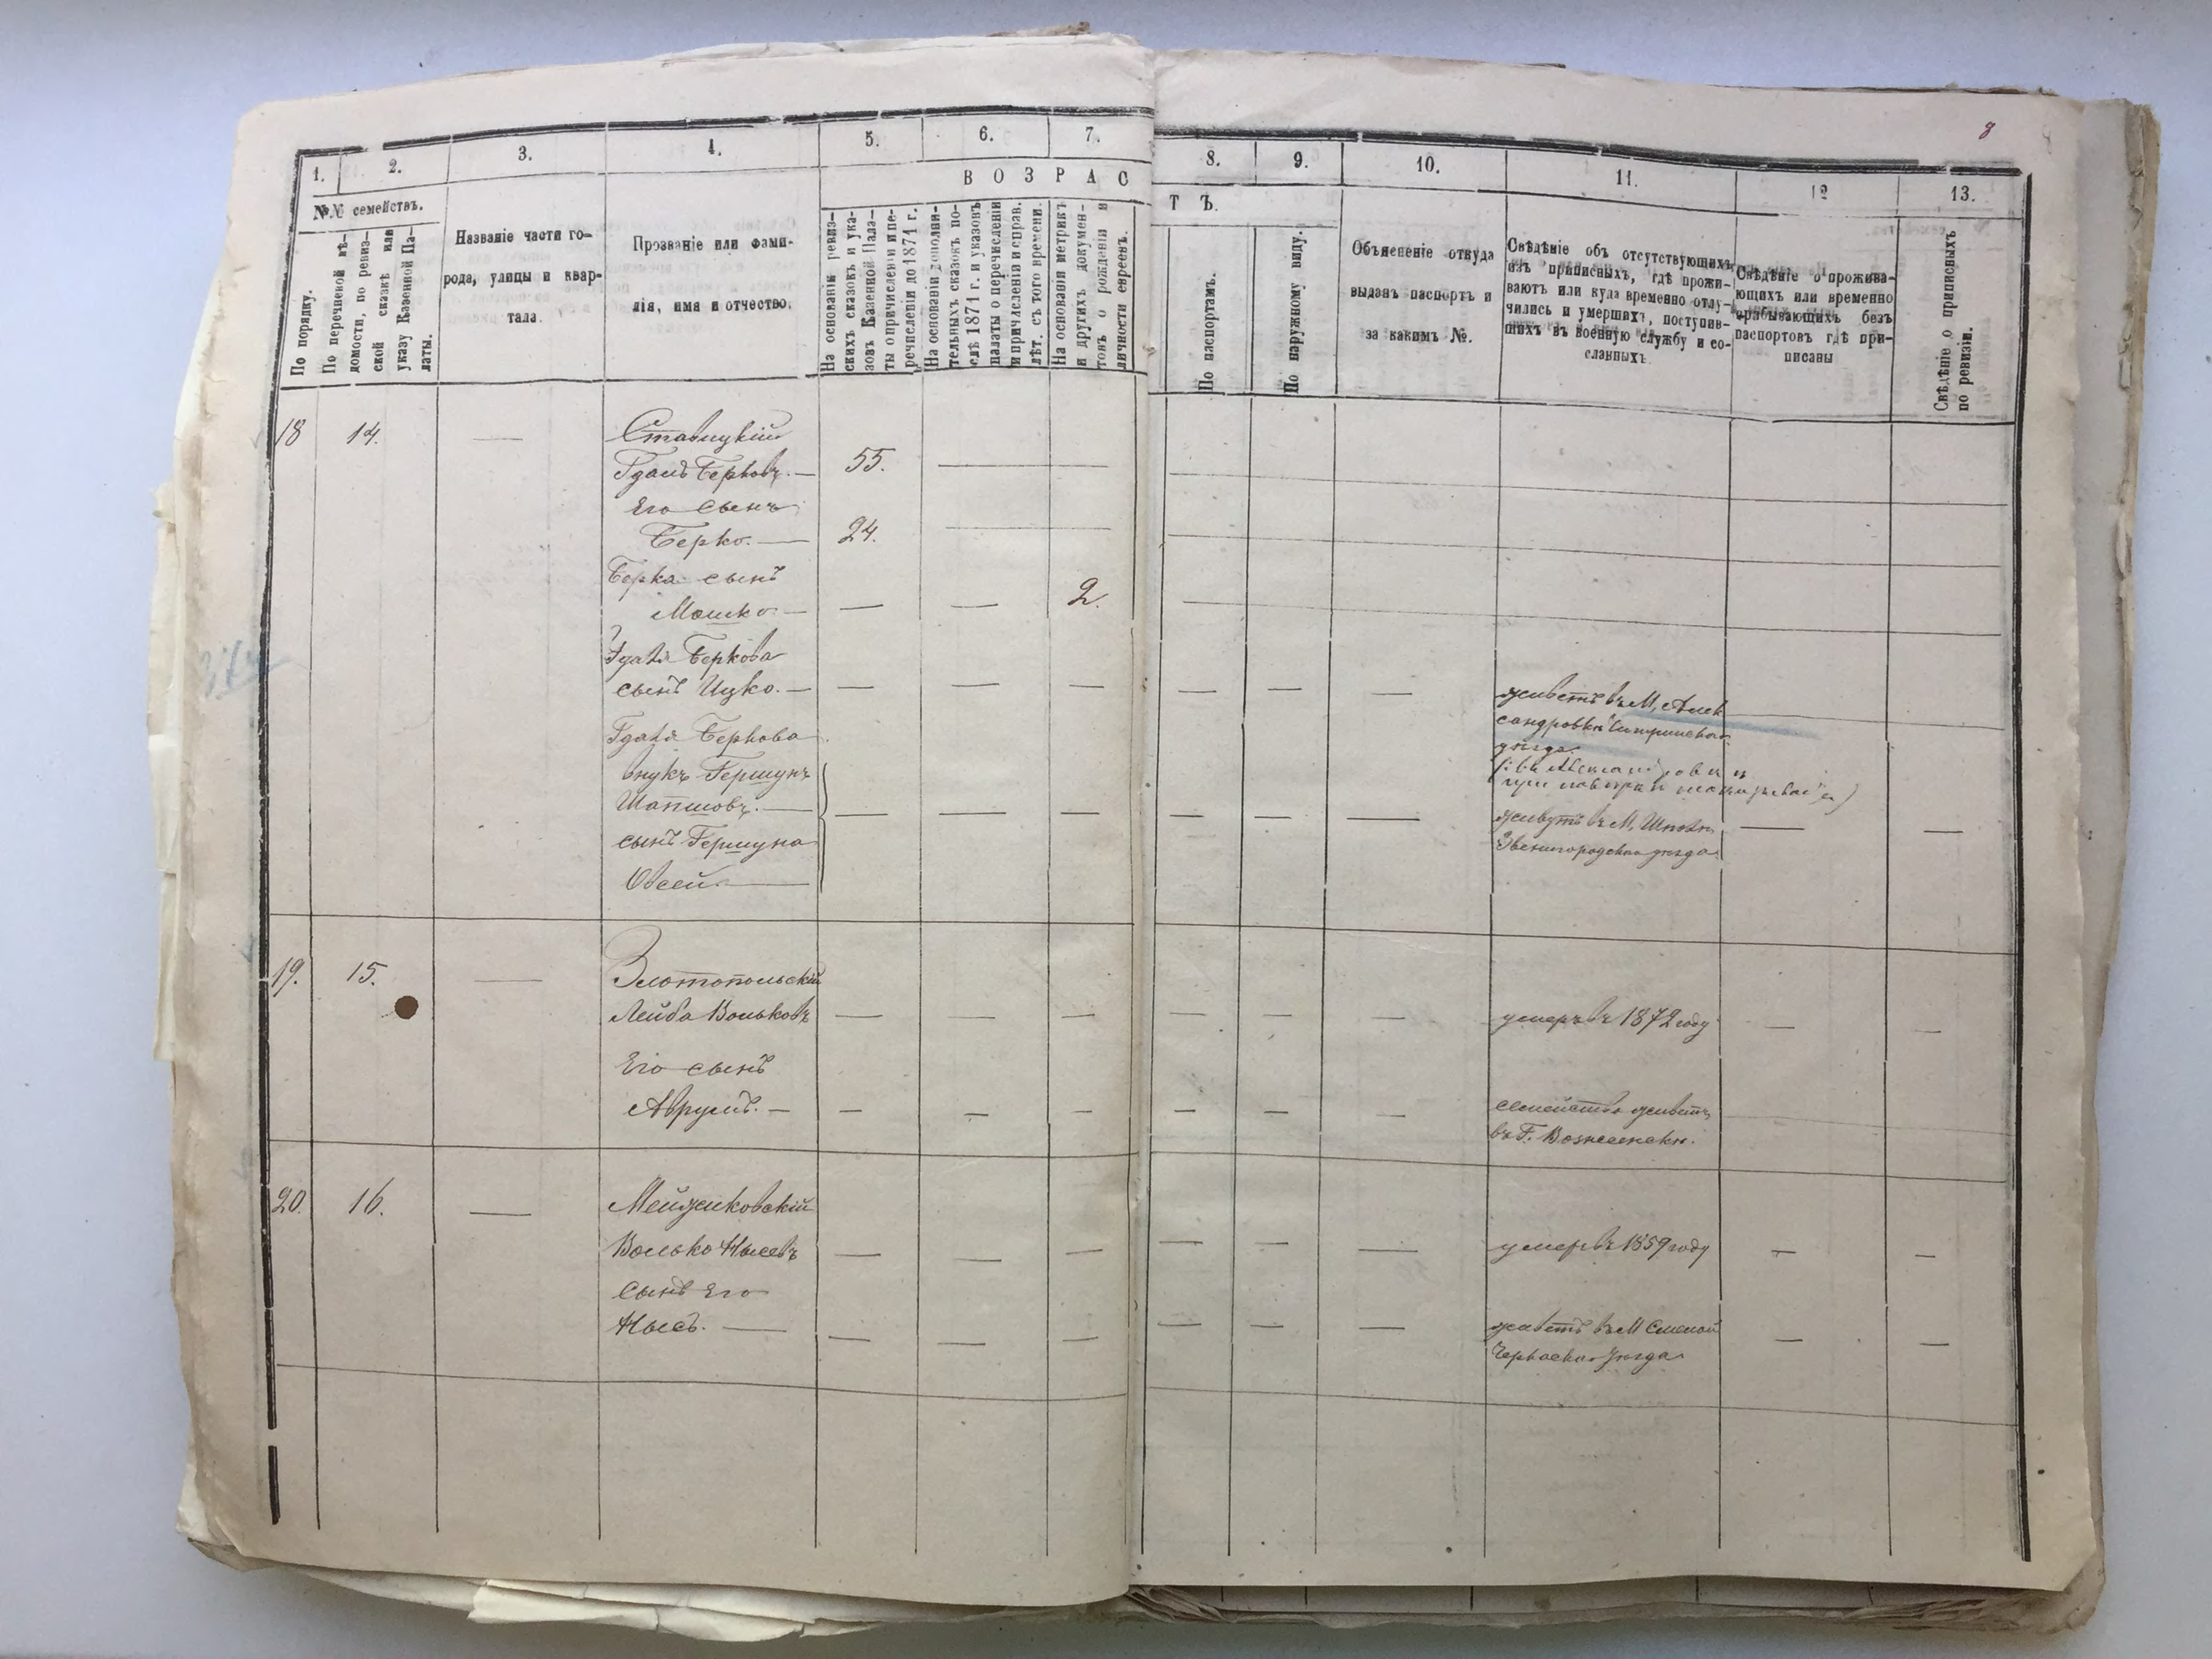 8
1. 2. 3. 4. 5. 6. 7. 8. 9. 10. 11. 12 13.
В О З Р А С Т Ъ.
№№ семействъ.
По порядку.
По перечневой вѣ-
домости, по ревиз-
ской сказкѣ или
указу Казенной Па-
латы.
Названіе части го-
рода, улицы и квар-
тала.
Прозваніе или фами-
лія, имя и отчество.
На основаніи ревиз-
скихъ сказокъ и ука-
зовъ Казенной Пала-
ты о причисленіи и пе-
речисленіи до 1871 г.
На основаніи дополни-
тельныхъ сказокъ по-
слѣ 1871 г. и указовъ
палаты о перечисленіи
и причисленіи и справ.
лѣт. съ того времени.
На основаніи метрикъ
и другихъ докумен-
товъ о рожденіи и
личности евреевъ.
По паспортамъ.
По наружному виду.
Объясненіе откуда
выданъ паспортъ и
за какимъ №.
Свѣдѣніе объ отсутствующихъ
изъ приписныхъ, гдѣ прожи-
ваютъ или куда временно отлу-
чились и умершихъ, поступив-
шихъ въ военную службу и со-
сланныхъ.
Свѣдѣніе о прожива-
ющихъ или временно
прабывающихъ безъ
паспортовъ гдѣ при-
писаны
Свѣдѣніе о приписныхъ
по ревизіи.
18 14. — Ставицкій
Гдаль Берковъ. — 55. — —
Его сынъ
Берко. — 24. — —
Берка сынъ
Мошко — — — 2.
Гдаля Беркова
сынъ Ицко. — — — — — — — живетъ въ М, Алек
сандровкѣ Чигринскаго
уѣзда.
Гдаля Беркова
внукъ Гершунъ
Шапшовъ. — — — — — — — живутъ въ М, Шполѣ — —
сынъ Гершуна Звенигородскаго уѣзда.
Овсей. —
19. 15. — Злотопольскій
Лейба Вольковъ — — — — — — умеръ въ 1872 году — —
Его сынъ
Аврумъ. — — — — — — — семейство живетъ
въ Г. Вознесенскѣ.
20. 16. — Мейжиковскій
Волько Нысевъ — — — — — — умеръ въ 1859 году — —
сынъ Его
Нысъ. — — — — — — — живетъ въ М Смелой — —
Черкаскаго Уѣзда